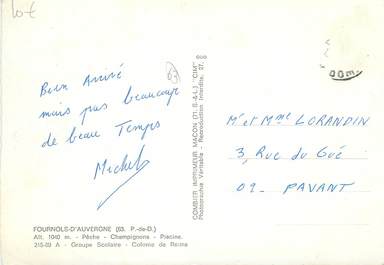 10€
63
Bien Arrivé
mais pas beaucoup
de beau Temps
Michel
608
COMBIER IMPRIMEUR MACON (71. S.-&-L.) "CIM"
Photographie Véritable - Reproduction Interdite. 27.
Mr et Mme LORANDIN
3, Rue du Gué
02 - PAVANT
FOURNOLS-D'AUVERGNE (63. P.-de-D.)
Alt. 1040 m. - Pêche - Champignons - Piscine.
215-03 A - Groupe Scolaire - Colonie de Reims